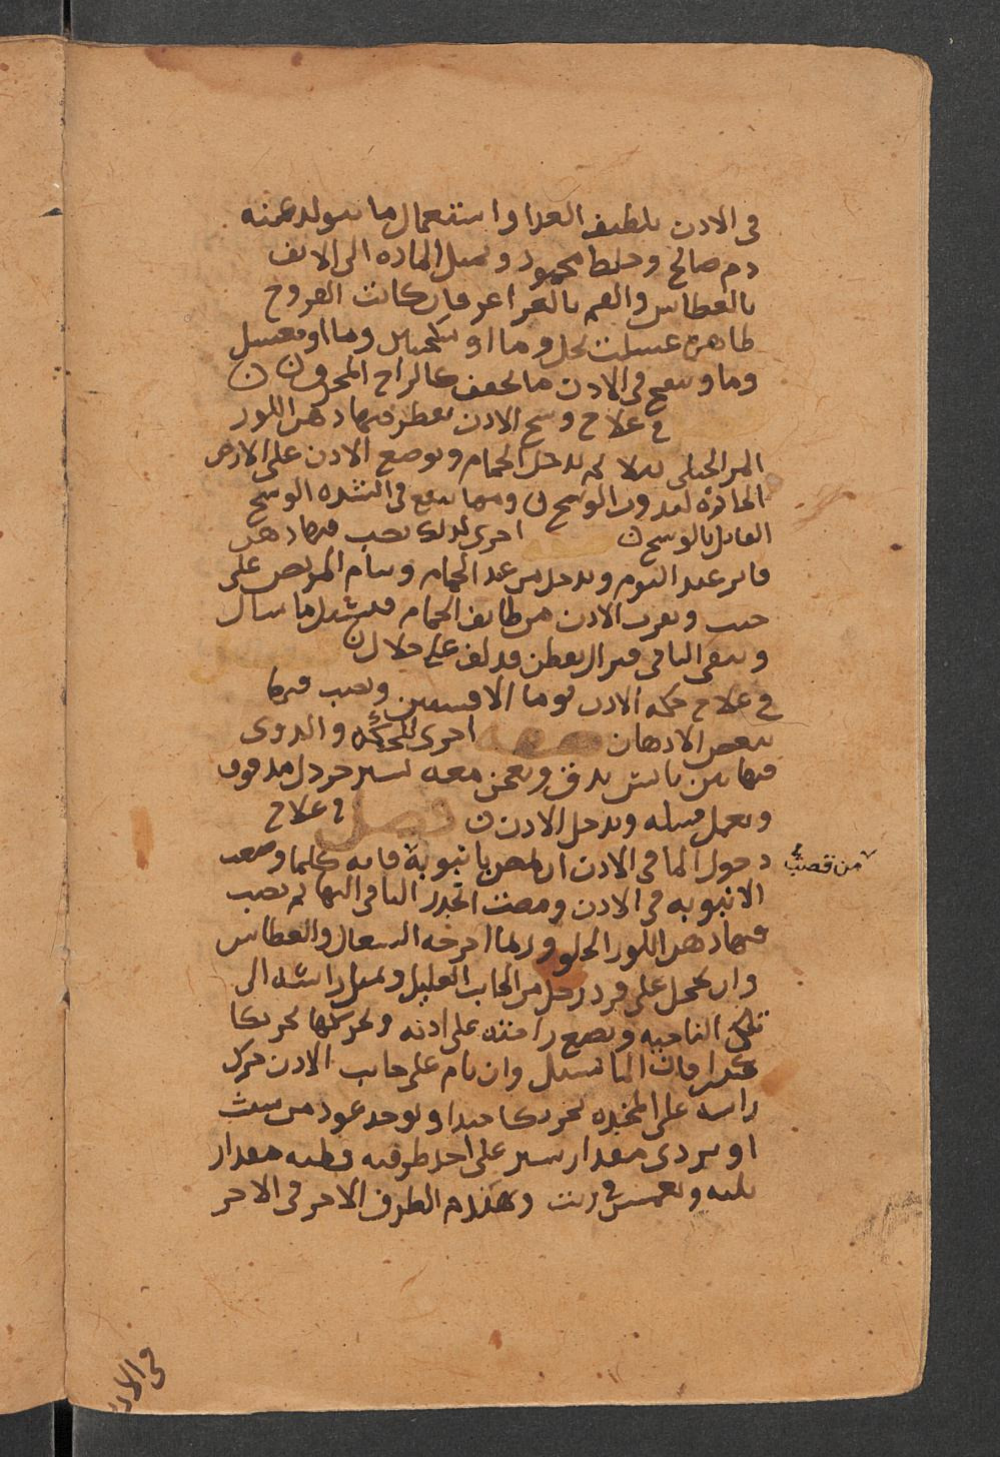 في الاذن بلطيف الغذا واستعمال ما يتولد عنه
دم صالح وخلط محمود وتميل الماده الى الانف
بالعطاس والفم بالغراغر فان كانت القروح
طاهره غسلت بخل وما او وما او بعسل
وما وينفخ في الاذن ما يجفف كالزاج المحروق ن ن
في علاج وسخ الاذن يقطر فيها دهن اللوز
المر الجبلي ليلا ثم يدخل الحمام ويوضع الاذن على الارض
الحاره ليذوب الوسخ ن ومما ينفع في السده الوسخ
القايل بالوسخ ن صفه اخرى لذلك يصب فيها دهن
فاتر عند النوم ويدخل من غد الحمام وينام المريض على
جنب ويقرب الاذن من طابق الحمام ما سال
ويبقى الباقي فيزال بقطن قد لف على خلال ن
فصل
في علاج حكه الاذن بوما الافسنتين ويصب فيها
بعض الادهان صفه اخرى للحكه والدوي
فيها تين يابس يدق ويعجن معه يسير خردل مدقوق
ويعمل فتيله ويدخل الاذن ن فصل في علاج
دخول الما في الاذن ان يمص بانبوبة فانه كلما وضعت
من قصب
الانبوبه في الاذن ومصت انجذر الباقي اليها ثم يصب
فيها دهن اللوز الحلو وربما اخرجه السعال والعطاس
وان يحجل على فرد رجل من الجانب العليل ويميل راسه الى
تلك الناحيه ويضع راحته على اذنه ويحركها تحريكا
كثيرا فان الما يسيل وان نام على جانب الاذن حرك
راسه على المخده تحريكا جيدا ويوخذ عود من شبث
او بردي مقدار شبر على احد طرفيه قطنه مقدار
ثلثه ويغمس في زيت ويهندم الطرف الاخر في الاخر
في الاذن